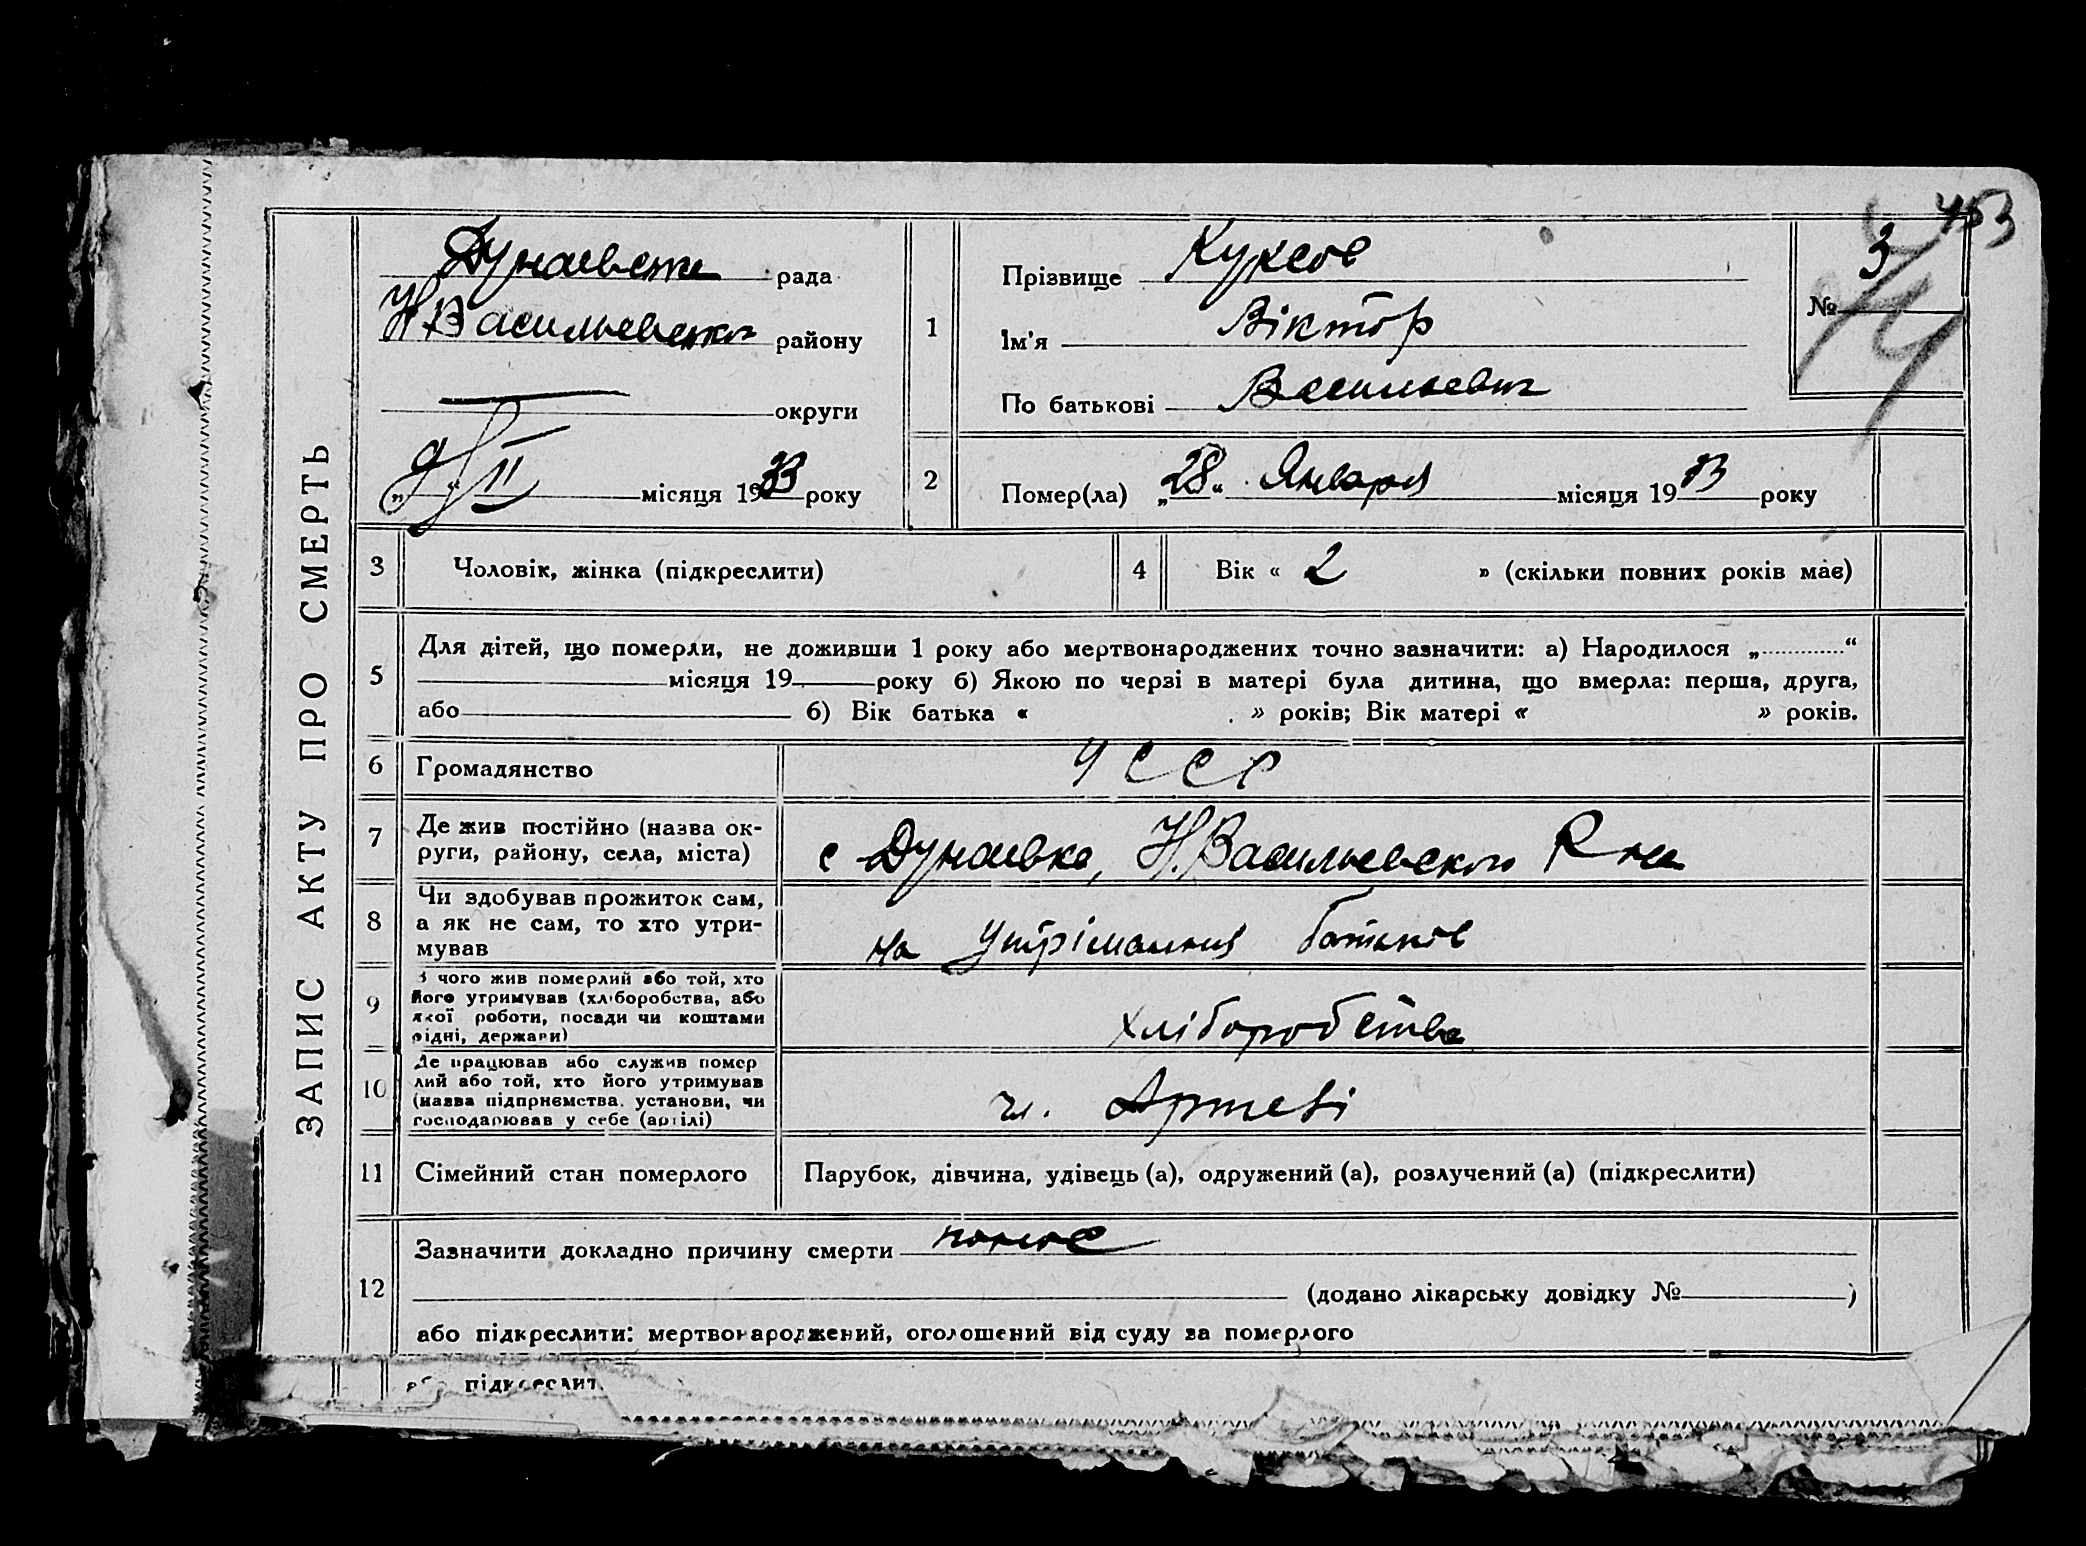 453
ЗАПИС АКТУ ПРО СМЕРТЬ
Дунаевська рада
Н Васильевского району
округи
„9“ II місяця 1933 року
1
Прізвище Куксов
Ім'я Віктор
По батькові Васильевич
№ 3
2
Помер(ла) „28“ Января місяця 1933 року
3 Чоловік, жінка (підкреслити)
4 Вік « 2 » (скільки повних років має)
5
Для дітей, що померли, не доживши 1 року або мертвонароджених точно зазначити: а) Народилося „ “
місяця 19 року б) Якою по черзі в матері була дитина, що вмерла: перша, друга,
або б) Вік батька « » років; Вік матері « » років.
6 Громадянство УССР
7 Де жив постійно (назва ок-
руги, району, села, міста)
с Дунаевка, Н.Васильевского Р на
8 Чи здобував прожиток сам,
а як не сам, то хто утри-
мував
на утріманния батьков
9 З чого жив померлий або той, хто
його утримував (хліборобства, або
якої роботи, посади чи коштами
рідні, держави)
хліборобства
10 Де працював або служив помер
лий або той, хто його утримував
(назва підприємства, установи, чи
господарював у себе (артілі)
чл. Артелі
11 Сімейний стан померлого Парубок, дівчина, удівець (а), одружений (а), розлучений (а) (підкреслити)
12
Зазначити докладно причину смерти понос
(додано лікарську довідку № )
або підкреслити: мертвонароджений, оголошений від суду за померлого
або підкреслит